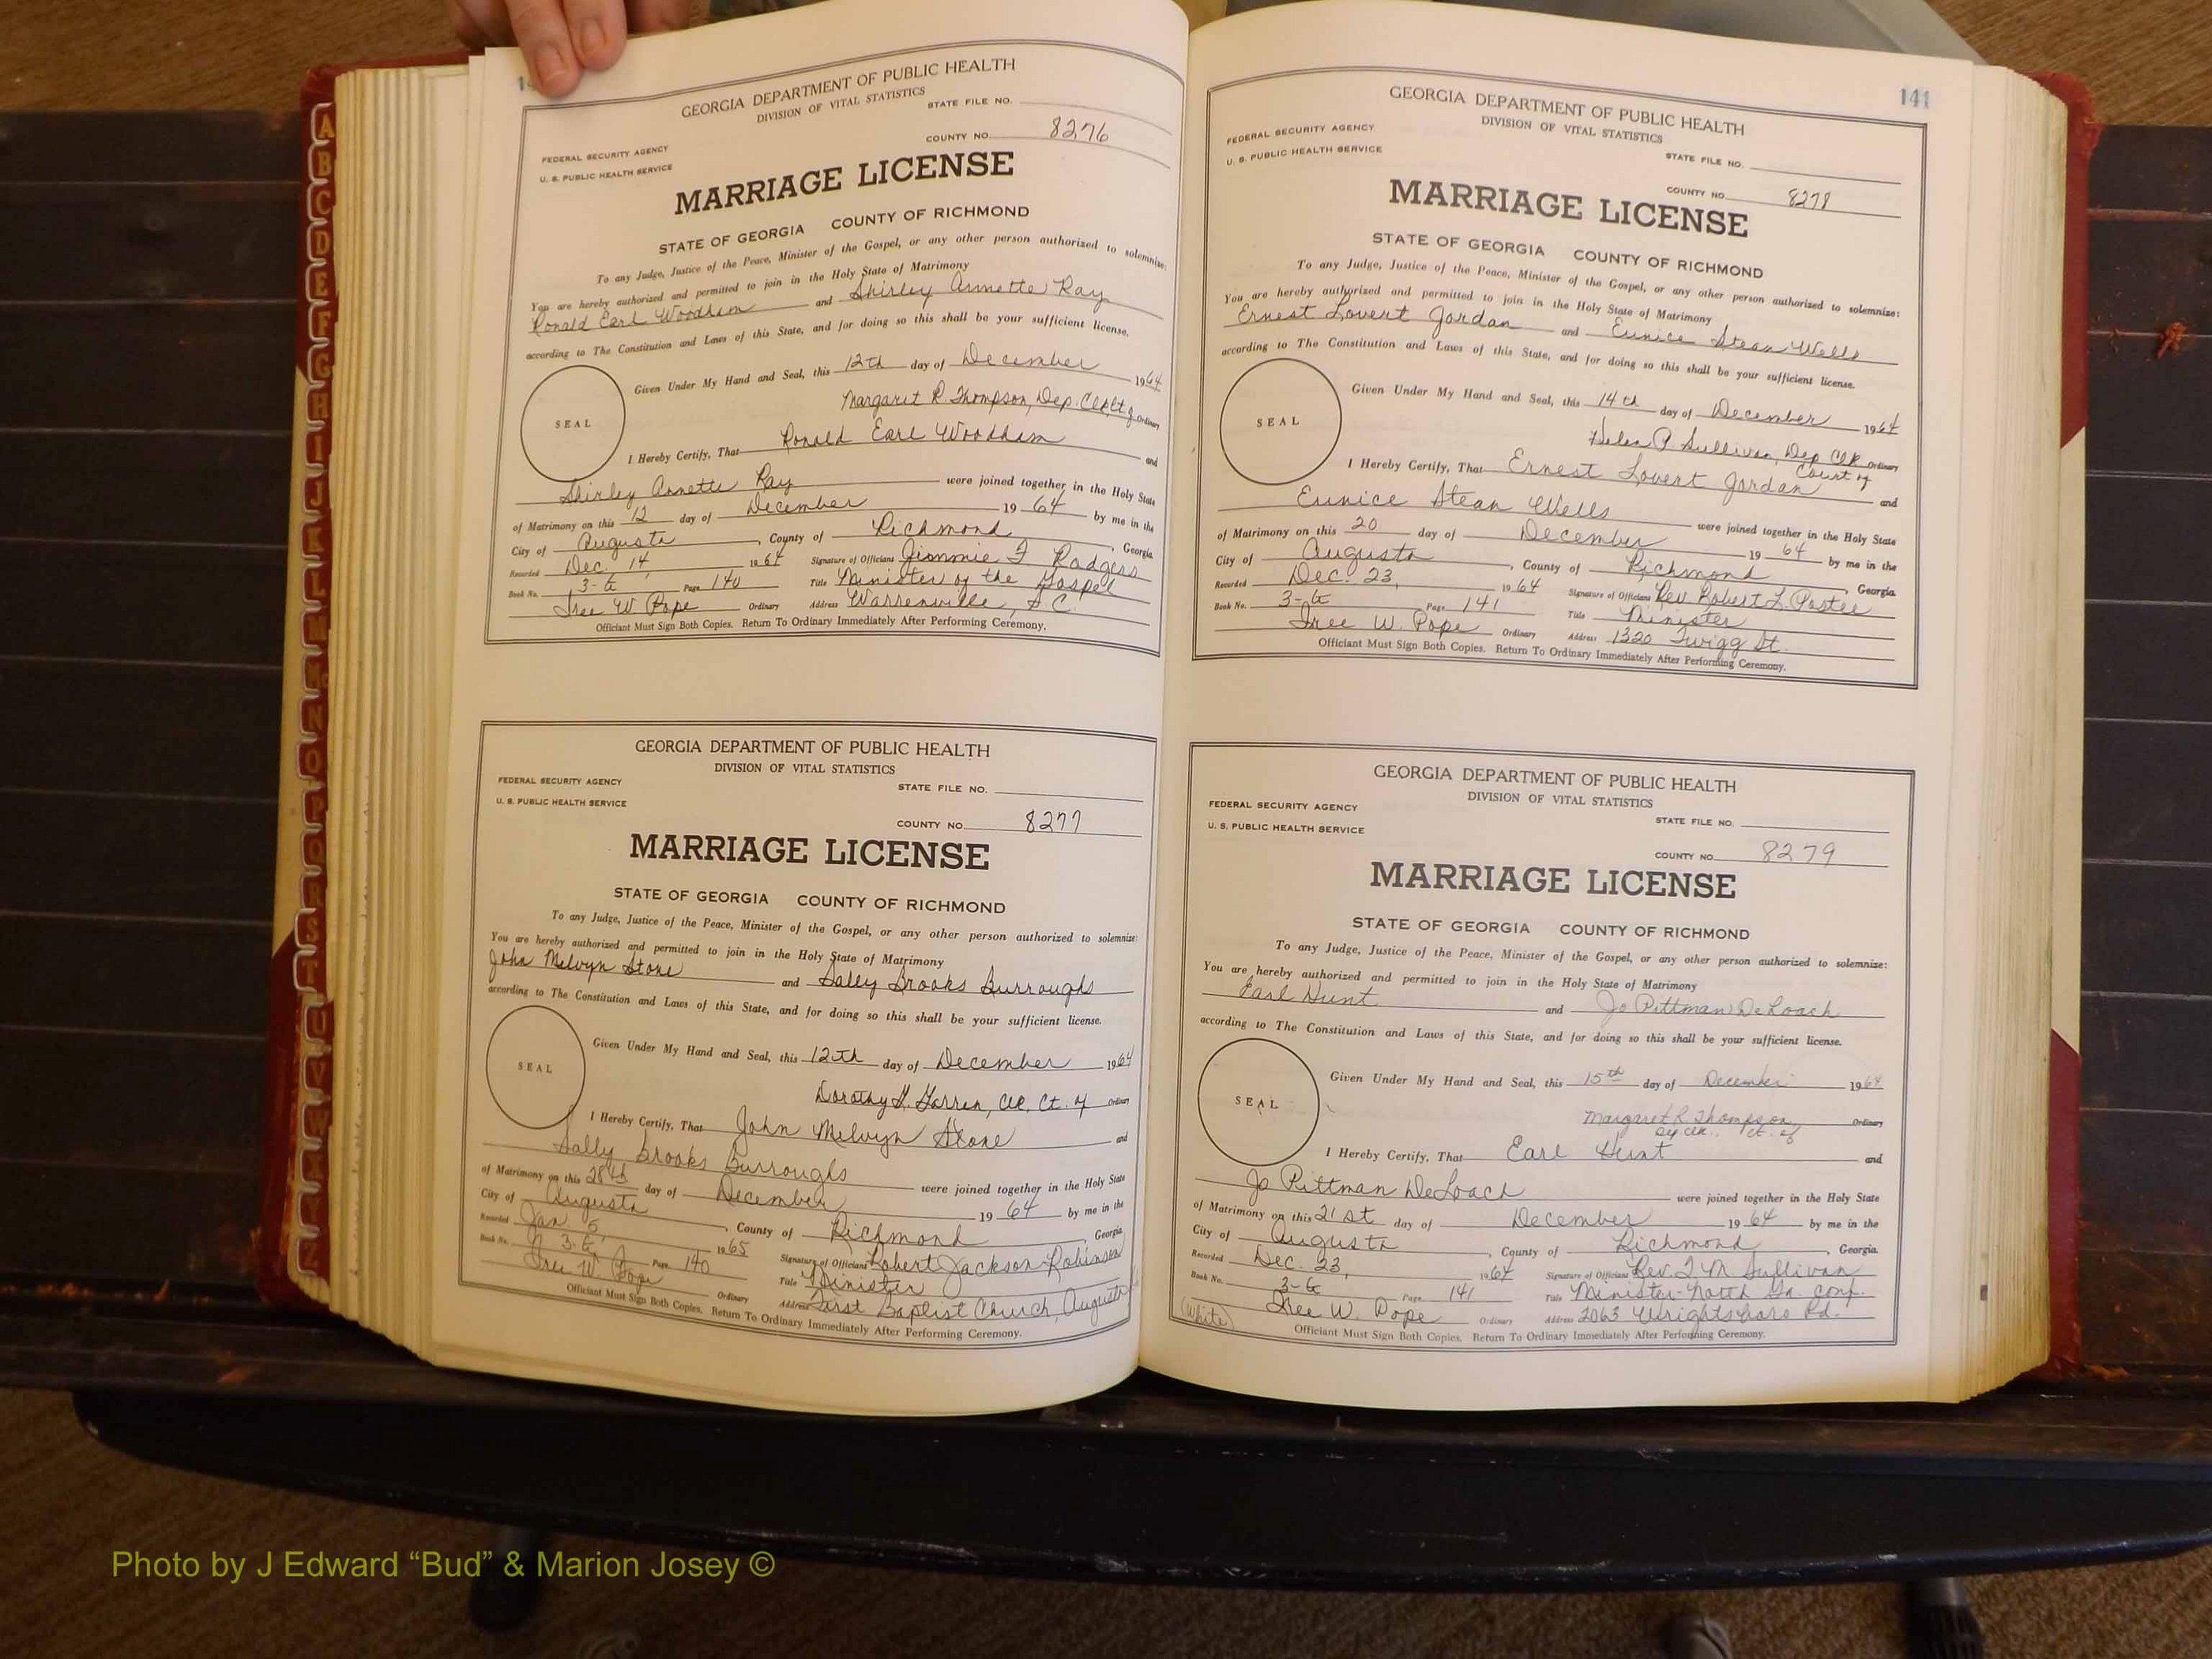 GEORGIA DEPARTMENT OF PUBLIC HEALTH
DIVISION OF VITAL STATISTICS
STATE FILE NO.
COUNTY NO. 8276
FEDERAL SECURITY AGENCY
U. S. PUBLIC HEALTH SERVICE
MARRIAGE LICENSE
STATE OF GEORGIA COUNTY OF RICHMOND
To any Judge, Justice of the Peace, Minister of the Gospel, or any other person authorized to solemnize:
You are hereby authorized and permitted to join in the Holy State of Matrimony
Ronald Earl Woodham and Shirley Annette Ray
according to The Constitution and Laws of this State, and for doing so this shall be your sufficient license.
SEAL
Given Under My Hand and Seal, this 12th day of December 1964
Margaret R. Thompson, Dep. Clk. Ct of Ordinary
I Hereby Certify, That Ronald Earl Woodham and
Shirley Annette Ray were joined together in the Holy State
of Matrimony on this 12 day of December 19 64 by me in the
City of Augusta, County of Richmond, Georgia
Recorded Dec. 14, 1964 Signature of Officiant Jimmie F Rodgers
Book No. 3-G Page 140 Title Minister of the Gospel
W. Pope Ordinary Address Warrenville, S C.
Officiant Must Sign Both Copies. Return To Ordinary Immediately After Performing Ceremony.
GEORGIA DEPARTMENT OF PUBLIC HEALTH
DIVISION OF VITAL STATISTICS
FEDERAL SECURITY AGENCY
STATE FILE NO.
U. S. PUBLIC HEALTH SERVICE
COUNTY NO. 8277
MARRIAGE LICENSE
STATE OF GEORGIA COUNTY OF RICHMOND
To any Judge, Justice of the Peace, Minister of the Gospel, or any other person authorized to solemnize:
You are hereby authorized and permitted to join in the Holy State of Matrimony
John Melvyn Stone and Sally Brooks Burroughs
according to The Constitution and Laws of this State, and for doing so this shall be your sufficient license.
SEAL
Given Under My Hand and Seal, this 12th day of December 1964
Dorothy Clk. Ct. of Ordinary
I Hereby Certify, That John Melvyn Stone and
Sally Brooks Burroughs were joined together in the Holy State
of Matrimony on this 28th day of December 19 64 by me in the
City of Augusta, County of Richmond, Georgia
Recorded Jan 5, 1965 Signature of Officiant Robert Jackson Robinson
Book No. 3-G Page 140 Title Minister
W. Pope Ordinary Address First Baptist Church, Augusta
Officiant Must Sign Both Copies. Return To Ordinary Immediately After Performing Ceremony.
141
GEORGIA DEPARTMENT OF PUBLIC HEALTH
DIVISION OF VITAL STATISTICS
FEDERAL SECURITY AGENCY
U. S. PUBLIC HEALTH SERVICE
STATE FILE NO.
COUNTY NO. 8278
MARRIAGE LICENSE
STATE OF GEORGIA COUNTY OF RICHMOND
To any Judge, Justice of the Peace, Minister of the Gospel, or any other person authorized to solemnize:
You are hereby authorized and permitted to join in the Holy State of Matrimony
Ernest Lovert Jordan and Eunice Stean Wells
according to The Constitution and Laws of this State, and for doing so this shall be your sufficient license.
SEAL
Given Under My Hand and Seal, this 14th day of December 1964
Helen P. Sullivan, Dep Clk Ordinary
Court of
I Hereby Certify, That Ernest Lovert Jordan and
Eunice Stean Wells were joined together in the Holy State
of Matrimony on this 20 day of December 19 64 by me in the
City of Augusta, County of Richmond, Georgia
Recorded Dec. 23, 1964 Signature of Officiant Rev. Robert L.
Book No. 3-G Page 141 Title Minister
W. Pope Ordinary Address 1320 Twigg St.
Officiant Must Sign Both Copies. Return To Ordinary Immediately After Performing Ceremony.
GEORGIA DEPARTMENT OF PUBLIC HEALTH
DIVISION OF VITAL STATISTICS
FEDERAL SECURITY AGENCY
STATE FILE NO.
U. S. PUBLIC HEALTH SERVICE
COUNTY NO. 8279
MARRIAGE LICENSE
STATE OF GEORGIA COUNTY OF RICHMOND
To any Judge, Justice of the Peace, Minister of the Gospel, or any other person authorized to solemnize:
You are hereby authorized and permitted to join in the Holy State of Matrimony
Earl Hunt and Jo Pittman DeLoach
according to The Constitution and Laws of this State, and for doing so this shall be your sufficient license.
SEAL
Given Under My Hand and Seal, this 15th day of December 1964
Margaret R Thompson Ordinary
Dep Clk. Ct. of
I Hereby Certify, That Earl Hunt and
Jo Pittman DeLoach were joined together in the Holy State
of Matrimony on this 21st day of December 19 64 by me in the
City of Augusta, County of Richmond, Georgia.
Recorded Dec. 23, 1964 Signature of Officiant Rev. J M Sullivan
Book No. 3-G Page 141 Title Minister-North Ga. Conf.
(White) W. Pope Ordinary Address 2063 Wrightsboro Rd.
Officiant Must Sign Both Copies. Return To Ordinary Immediately After Performing Ceremony.
Photo by J Edward “Bud” & Marion Josey ©